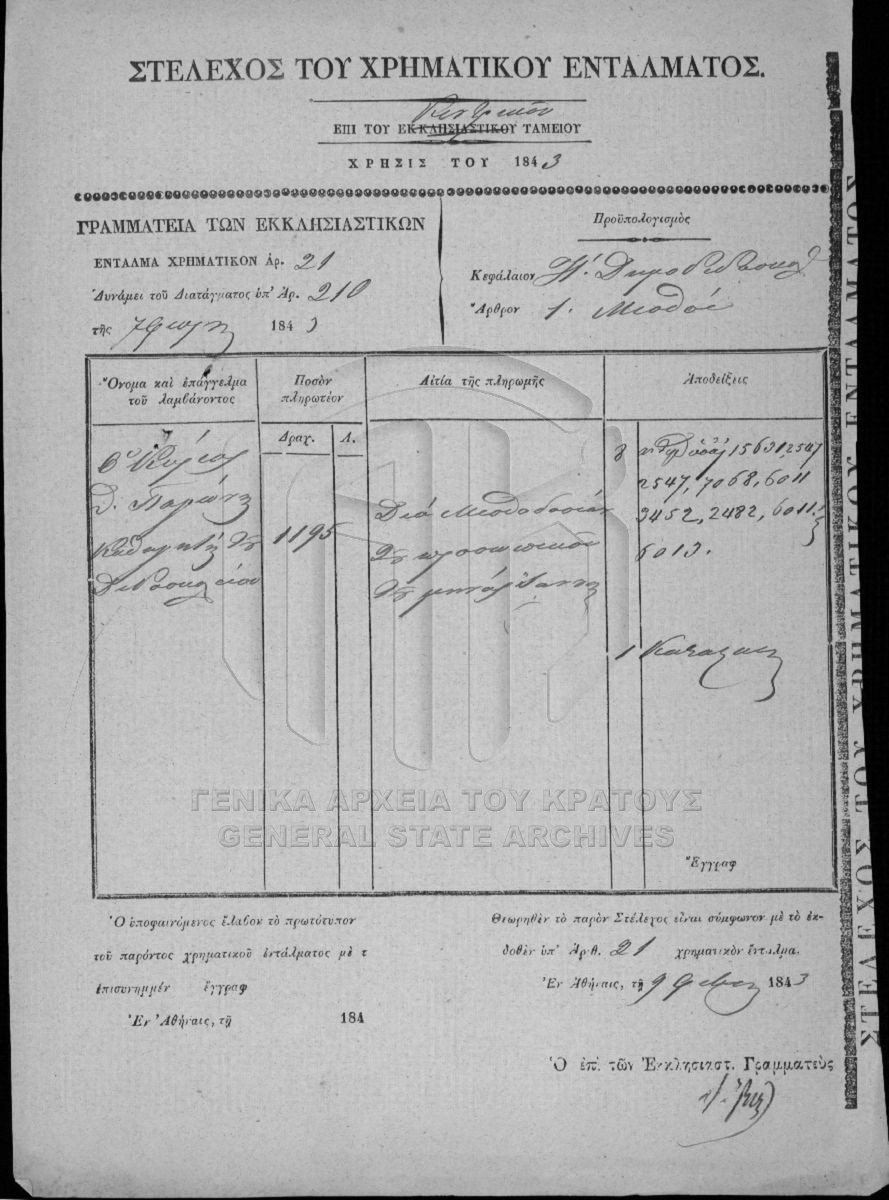 ΣΤΕΛΕΧΟΣ ΤΟΥ ΧΡΗΜΑΤΙΚΟΥ ΕΝΤΑΛΜΑΤΟΣ.
Κεντρικοῦ
ΕΠΙ ΤΟΥ ΕΚΚΛΗΣΙΑΣΤΙΚΟΥ ΤΑΜΕΙΟΥ
ΧΡΗΣΙΣ ΤΟΥ 1843
ΓΡΑΜΜΑΤΕΙΑ ΤΩΝ ΕΚΚΛΗΣΙΑΣΤΙΚΩΝ
ΕΝΤΑΛΜΑ ΧΡΗΜΑΤΙΚΟΝ Ἀρ. 21
Δυνάμει τοῦ Διατάγματος ὑπ' Ἀρ. 210
τῆς 1843
Προϋπολογισμὸς
Κεφάλαιον Η'.
Ἄρθρον 1. Μισθοὶ
Ὄνομα καὶ ἐπάγγελμα
τοῦ λαμβάνοντος
Ποσὸν
πληρωτέον
Αἰτία τῆς πληρωμῆς
Ἀποδείξεις
Δραχ. Λ.
Ὁ Κύριος
Καθηγητὴς τοῦ
Διδασκαλείου
1195
Διὰ Μισθοδοσίαν
τοῦ προσωπικοῦ
τοῦ μηνὸς
8 15631, 2547
2547, 7068, 6011
3452, 2482, 6011
6013.
1
Ἔγγραφ
ΓΕΝΙΚΑ ΑΡΧΕΙΑ ΤΟΥ ΚΡΑΤΟΥΣ
GENERAL STATE ARCHIVES
Ὁ ὑποφαινόμενος ἔλαβον τὸ πρωτότυπον
τοῦ παρόντος χρηματικοῦ ἐντάλματος μὲ τ
ἐπισυνημμέν ἔγγραφ
Ἐν Ἀθήναις, τῇ 184
Θεωρηθὲν τὸ παρὸν Στέλεχος εἶναι σύμφωνον μὲ τὸ ἐκ-
δοθὲν ὑπ' Ἀριθ. 21 χρηματικὸν ἔνταλμα.
Ἐν Ἀθήναις, τῇ 9 1843
Ὁ ἐπὶ τῶν Ἐκκλησιαστ. Γραμματεὺς
ΣΤΕΛΕΧΟΣ ΤΟΥ ΧΡΗΜΑΤΙΚΟΥ ΕΝΤΑΛΜΑΤΟΣ